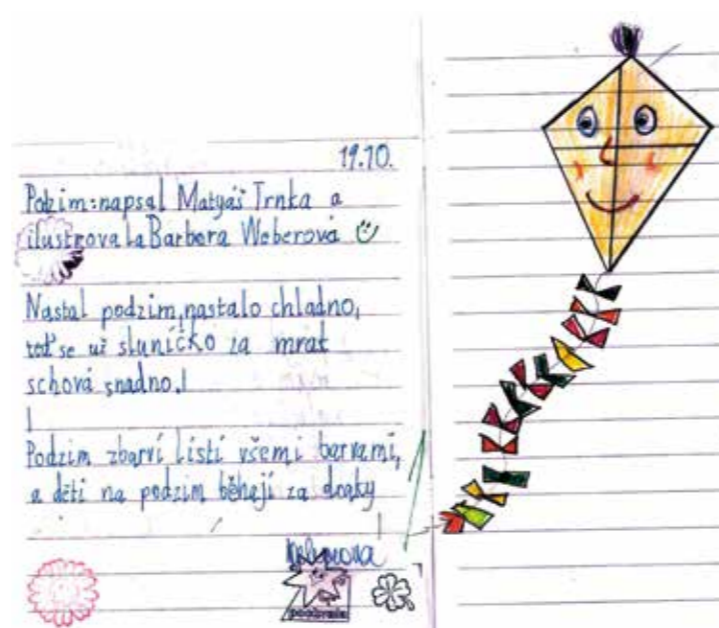 19.10.
Podzim: napsal Matyáš Trnka a
ilustrovala Barbora Weberová
Nastal podzim, nastalo chladno,
teď se už sluníčko za mrak
schová snadno.
Podzim zbarví listí všemi barvami,
a děti na podzim běhají za draky